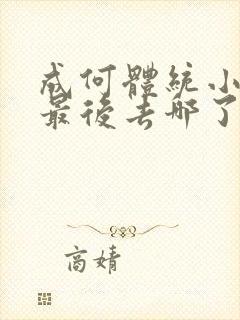 成何體統小
最後去哪了
高婧